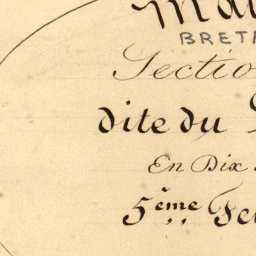 Mai
BRET
Sectio
dite du
En Dix
5ème Feu